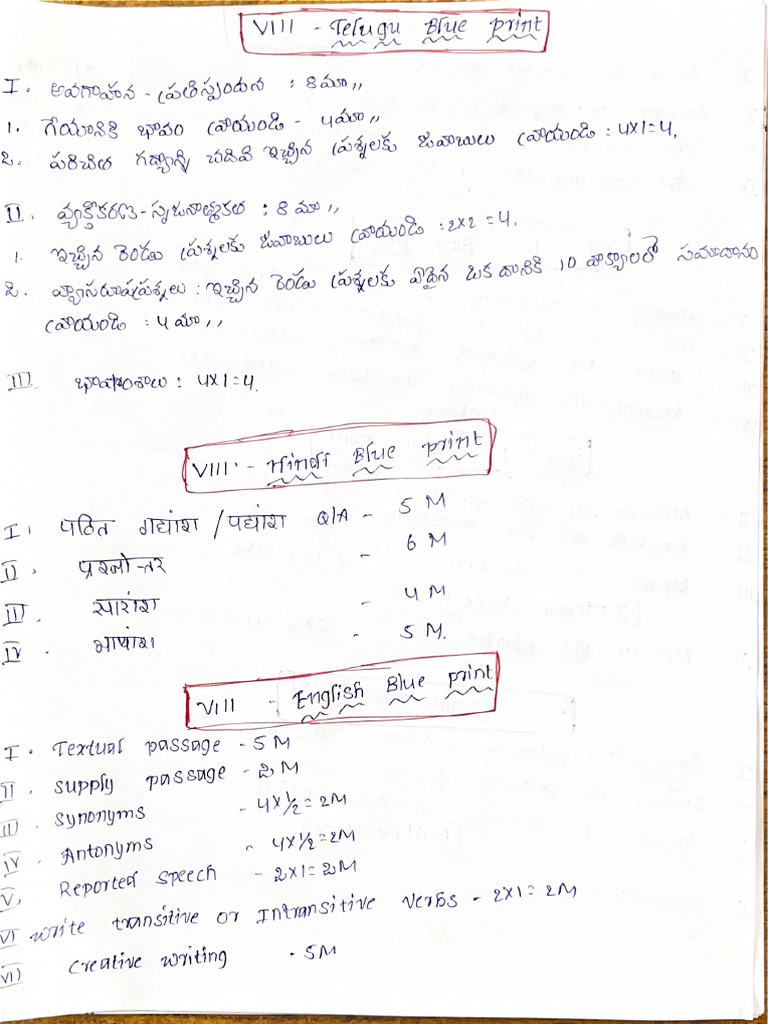 VIII - Telugu Blue print
I. అవగాహన - ప్రతిస్పందన : 8 మా,,
1. గేయానికి భావం వ్రాయండి - 4 మా,,
2. పరిచిత గద్యాన్ని చదివి ఇచ్చిన ప్రశ్నలకు జవాబులు వ్రాయండి : 4x1=4.
II. వ్యక్తీకరణ - సృజనాత్మకత : 8 మా,,
1. ఇచ్చిన రెండు ప్రశ్నలకు జవాబులు వ్రాయండి : 2x2 = 4.
2. వ్యాసరూపప్రశ్నలు : ఇచ్చిన రెండు ప్రశ్నలకు ఏదైన ఒక దానికి 10 వాక్యాలలో సమాదానం
వ్రాయండి : 4 మా,,
III. భాషాంశాలు : 4x1=4.
VIII - Hindi Blue print
I. पठित गद्यांश / पद्यांश Q/A - 5 M
II. प्रश्नोत्तर - 6 M
III. सारांश - 4 M
IV. भाषांश - 5 M.
VIII - English Blue print
I. Textual passage - 5 M
II. supply passage - 2 M
III. Synonyms - 4x1/2=2M
IV. Antonyms - 4x1/2=2M
V. Reported speech - 2x1=2M
VI write transitive or Intransitive verbs - 2x1=2M
VII creative writing - 5M